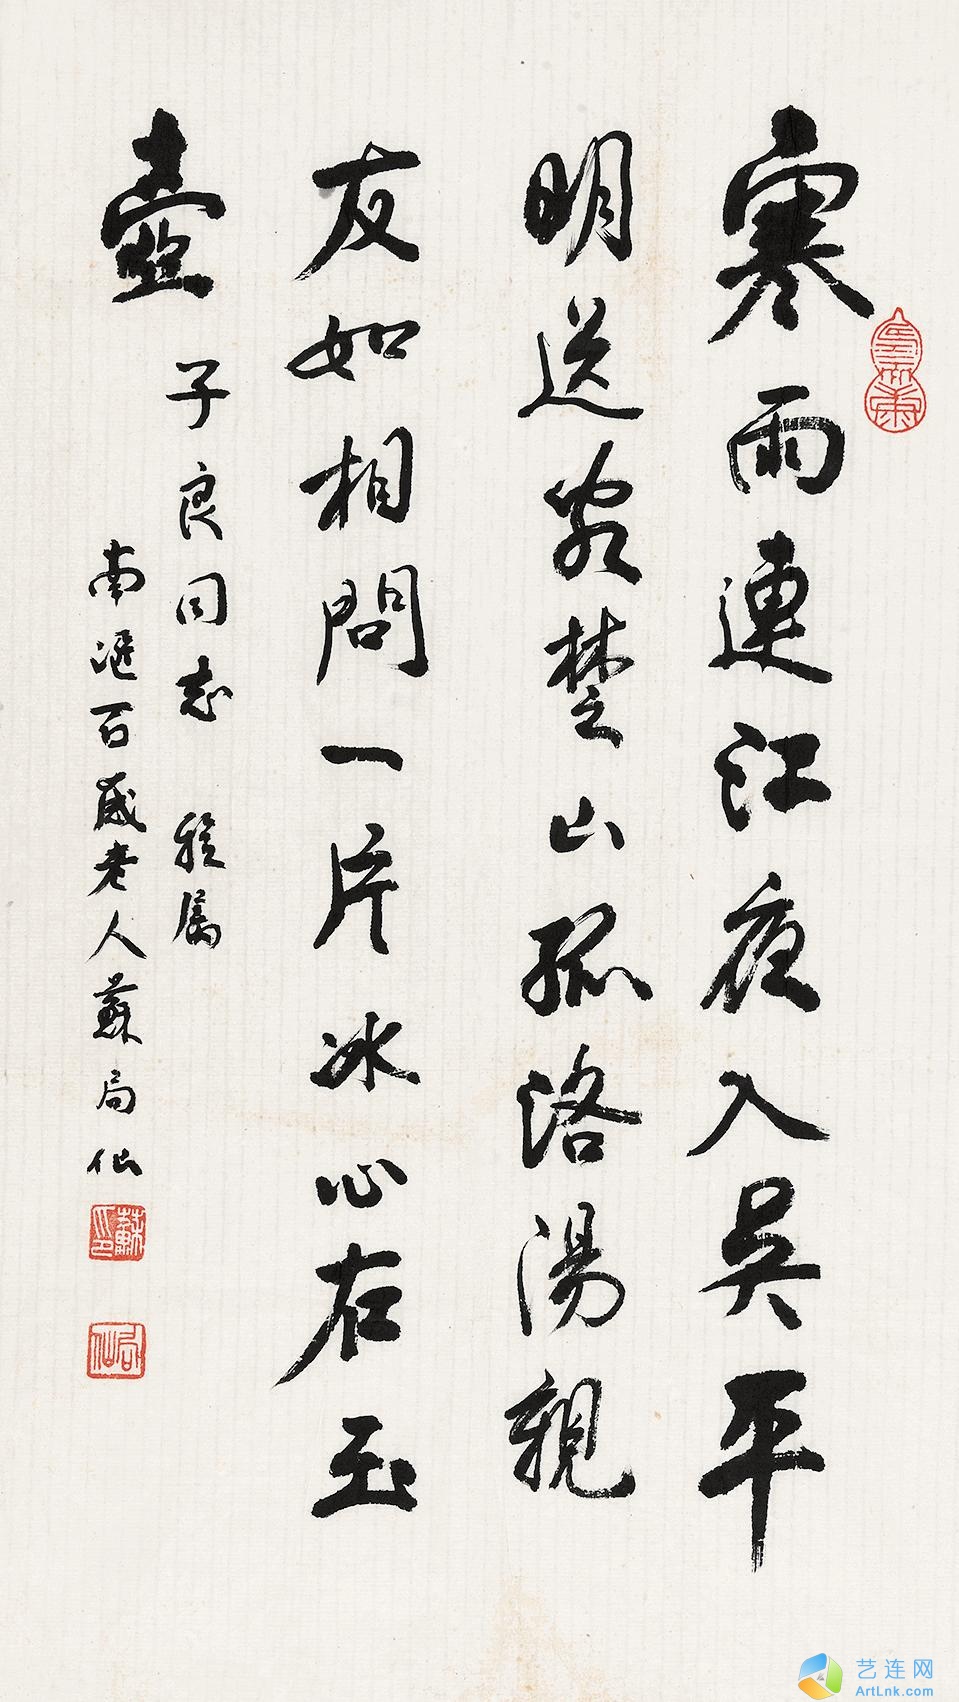 寒雨連江夜入吳平
明送客楚山孤洛陽親
友如相問一片冰心在玉
壺 子良同志 雅屬
南滙百歲老人蘇局仙
蘇印
局仙
艺连网
ArtLnk.com